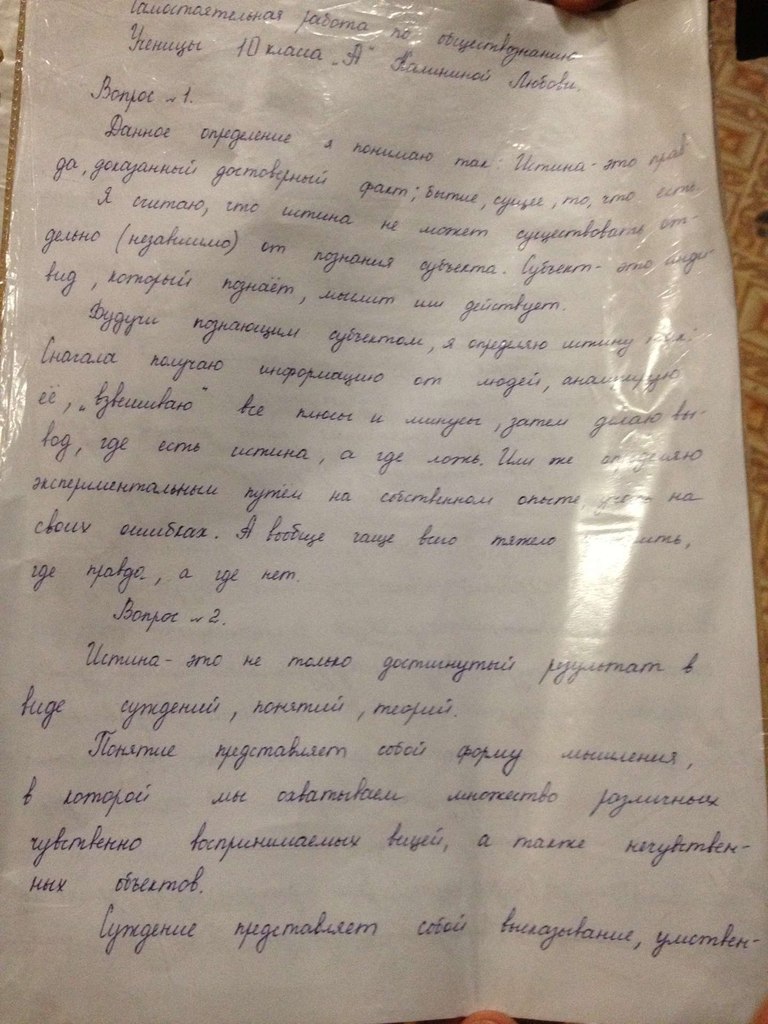 Самостоятельная работа по обществознанию
Ученицы 10 класса „А" Калининой Любови.
Вопрос №1.
Данное определение я понимаю так: Истина - это прав
да, доказанный достоверный факт; бытие, сущее, то, что есть
Я считаю, что истина не может существовать от-
дельно (независимо) от познания субъекта. Субъект - это инди-
вид, который познаёт, мыслит или действует.
Будучи познающим субъектом, я определяю истину так:
Сначала получаю информацию от людей, анализирую
её, „взвешиваю" все плюсы и минусы, затем делаю вы-
вод, где есть истина, а где ложь. Или же определяю
экспериментальным путём на собственном опыте, учась на
своих ошибках. А вообще чаще всего тяжело
где правда, а где нет.
Вопрос №2.
Истина - это не только достигнутый результат в
виде суждений, понятий, теорий.
Понятие представляет собой форму мышления,
в которой мы охватываем множество различных
чувственно воспринимаемых вещей, а также нечувствен-
ных объектов.
Суждение представляет собой высказывание, умствен-